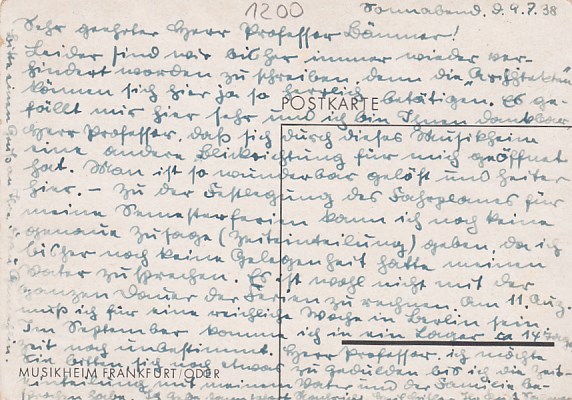 1200
Sonnabend, d. 9.7.38
Sehr geehrter Herr Professor Dänner!
Leider sind wir bisher immer wieder ver-
hindert worden zu schreiben, denn die
können sich hier ja so herrlich betätigen. Es ge-
POSTKARTE
fällt mir hier sehr und ich bin Ihnen dankbar
Herr Professor, daß sich durch dieses Musikheim
eine andere Blickrichtung für mich geöffnet
hat. Man ist so wunderbar gelöst und heiter
hier. – Zu der Festlegung des Fahrplanes für
meine Semesterferien kann ich noch keine
genaue Zusage (Zeiteinteilung) geben, da ich
bisher noch keine Gelegenheit hatte meinen
Vater zu sprechen. Es ist wohl nicht mit der
ganzen Dauer der Ferien zu rechnen. Am 11. Aug.
muß ich für eine reichliche Woche in Berlin sein.
Im September komme ich in ein Lager ca 14
Zeit noch unbestimmt. Herr Professor, ich möchte
Sie bitten sich noch etwas zu gedulden bis ich die Zeit-
MUSIKHEIM FRANKFURT/ODER
einteilung mit meinem Vater und der Familie be-
sprochen habe.
Bitte einen Gruß an